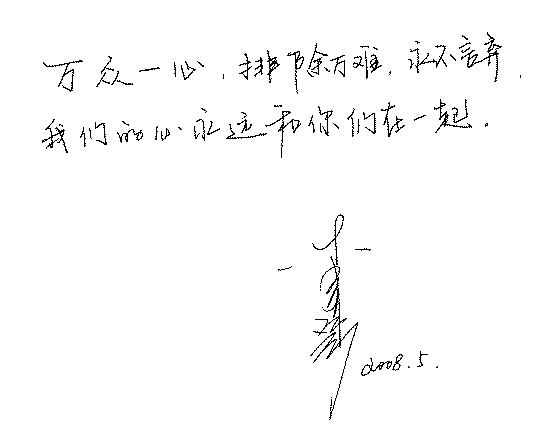 万众一心，排除万难，永不言弃，
我们的心永远和你们在一起。
2008.5.